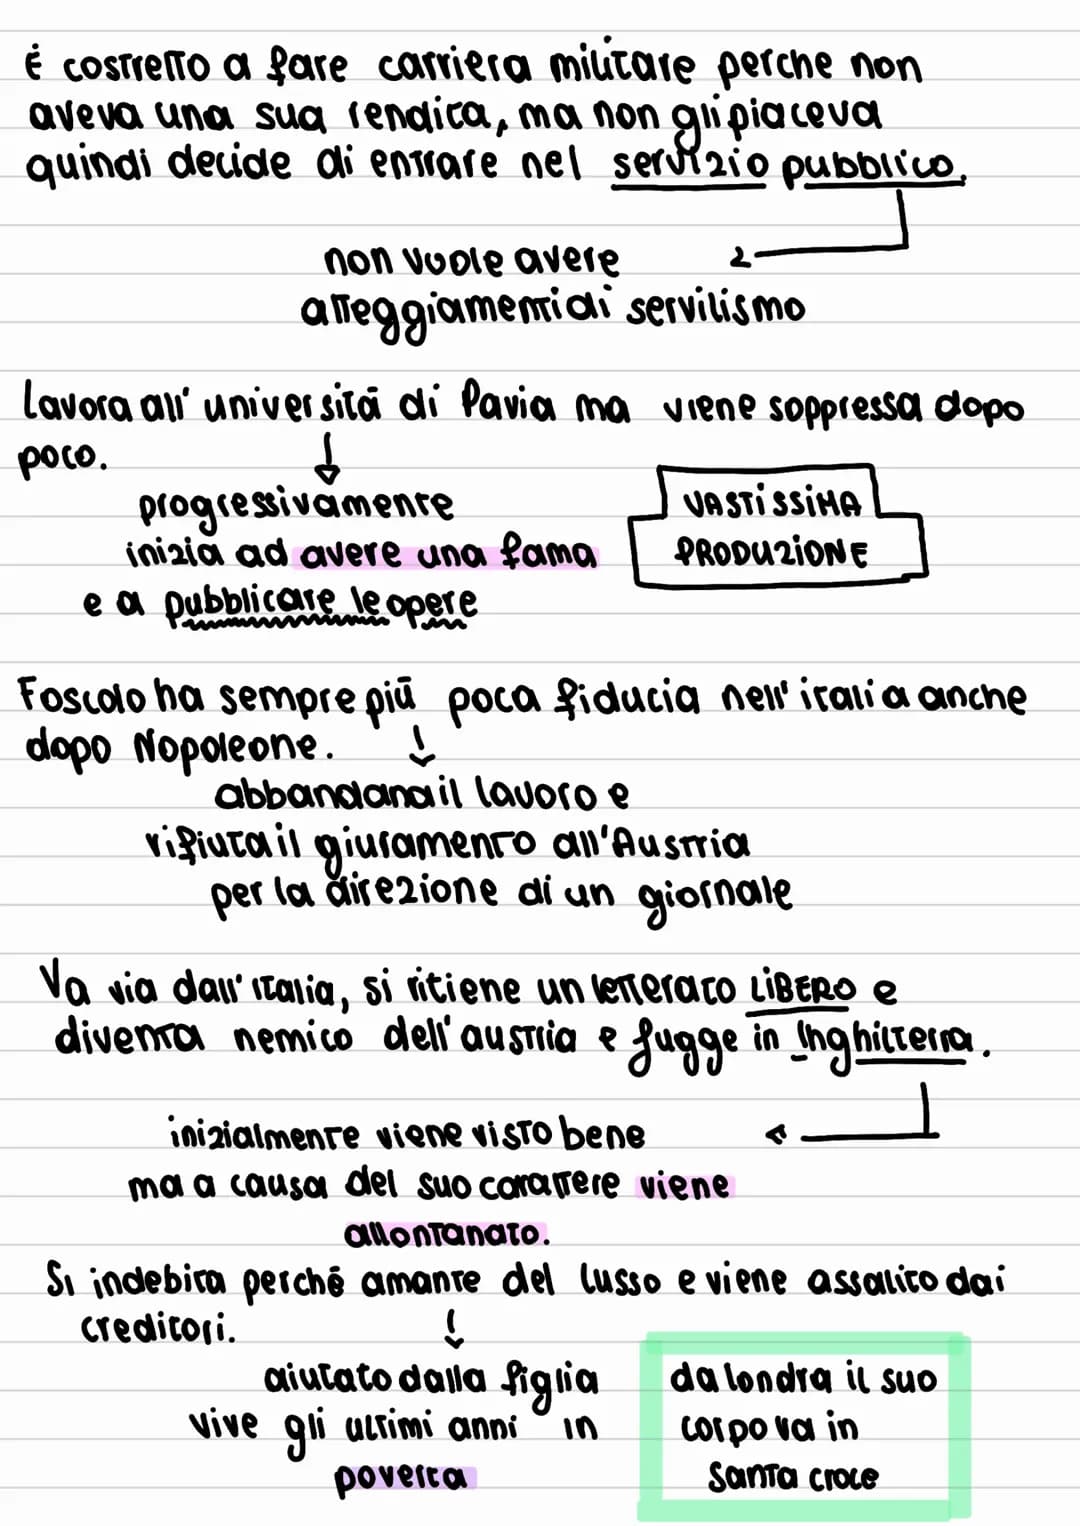 È costretto a fare carriera militare perche non
aveva una sua rendita, ma non gli piaceva
quindi decide di entrare nel servizio pubblico.
non vuole avere
atteggiamenti di servilismo
Lavora all' università di Pavia ma viene soppressa dopo
poco.
progressivamente
inizia ad avere una fama
e a pubblicare le opere
VASTISSIMA
PRODUZIONE
Foscolo ha sempre più poca fiducia nell' italia anche
dopo Nopoleone.
abbandana il lavoro e
rifiuta il giuramento all'Austria
per la direzione di un giornale
Va via dall' Italia, si ritiene un letterato LIBERO e
diventa nemico dell' austria e fugge in Inghilterra.
inizialmente viene visto bene
ma a causa del suo carattere viene
allontanato.
Si indebita perché amante del lusso e viene assalito dai
creditori.
aiutato dalla figlia
vive gli ultimi anni in
poverta
da londra il suo
corpo va in
Santa croce